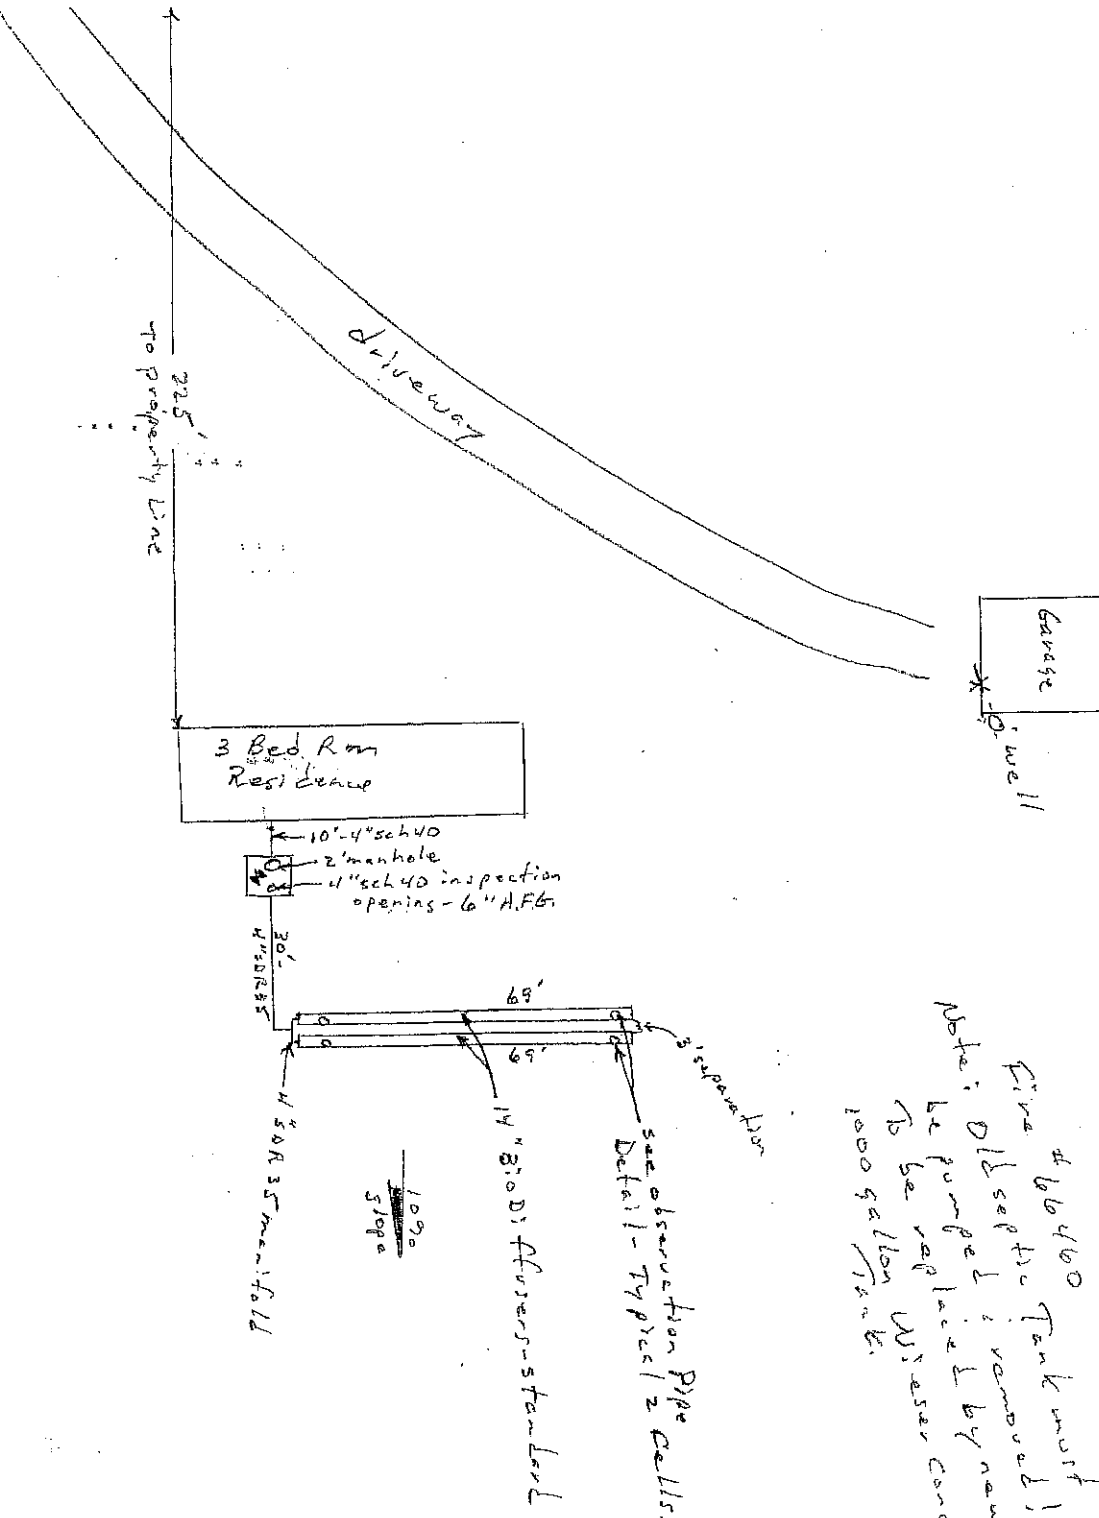 driveway
225'
To property Line
Garage
well
3 Bed Rm
Residence
10'-4"sch40
2'manhole
4"sch40 inspection
opening-6"A.F.G.
30'-
4"SDR35
69'
69'
3'separation
see observation Pipe
Detail-Typical 2 Cells.
14"BioDiffusers-standard
4"SDR35 manifold
10%
slope
Fire #66460
Note: Old septic Tank must
be pumped & removed
To be replaced by new
1000 gallon Wieser Conc
Tank.